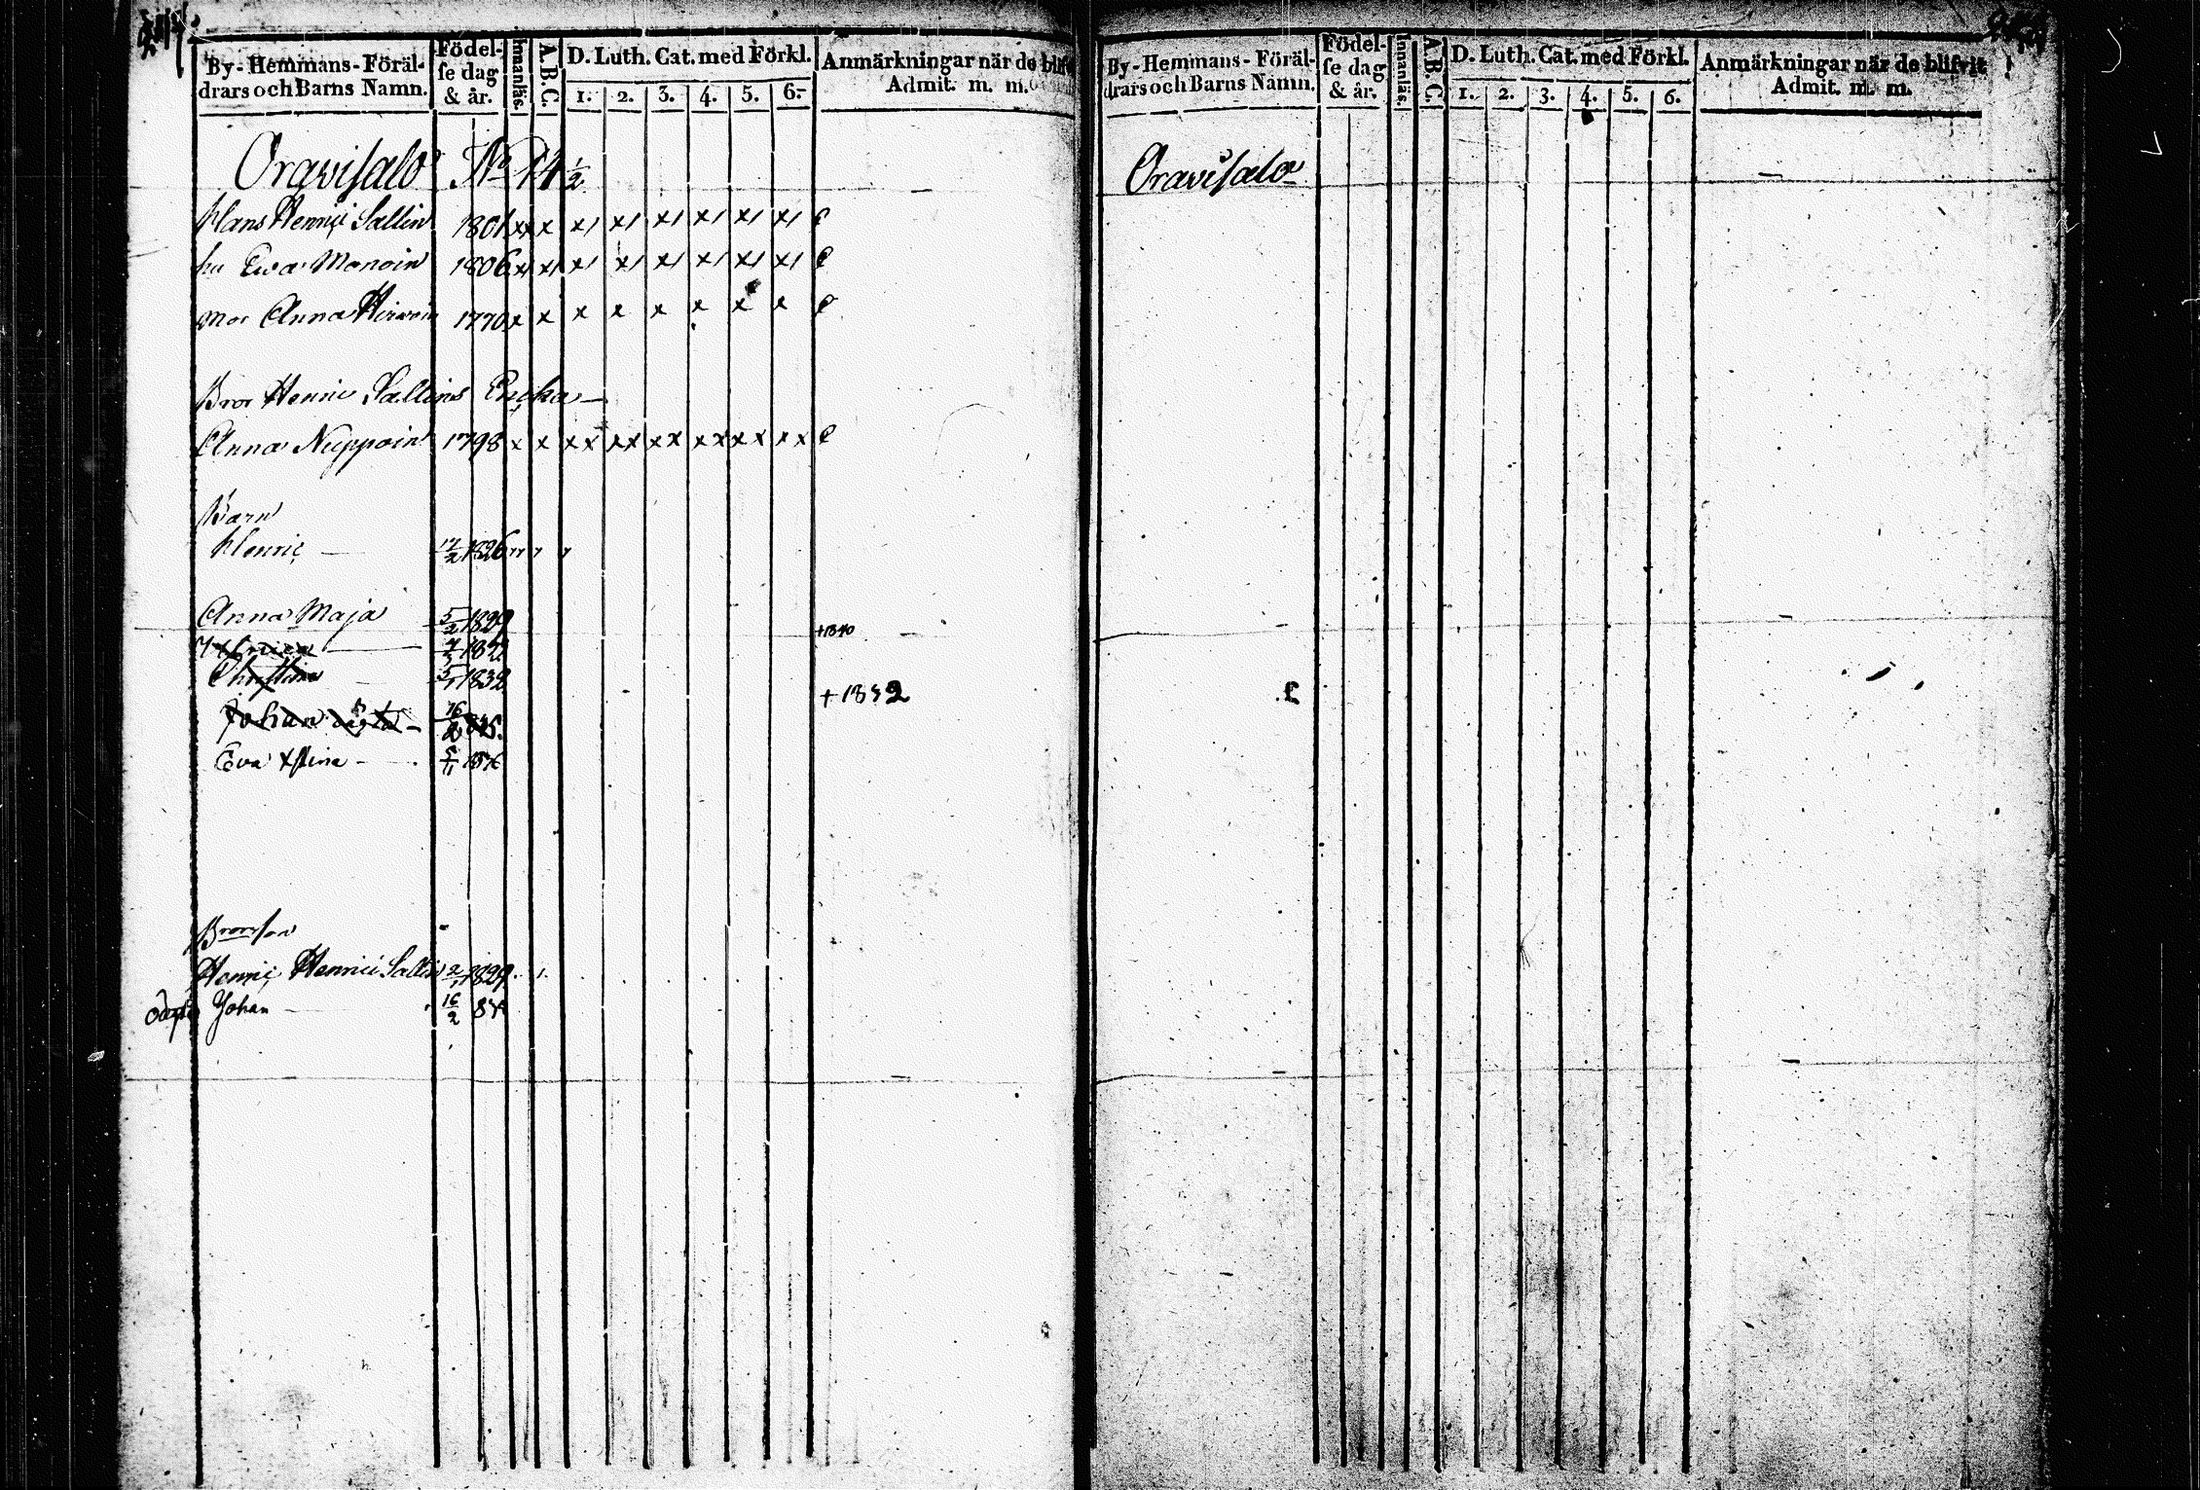 By-Hemmans-Föräl-
drars och Barns Namn.
Födel-
se dag
& år.
Innanläs.
A.B.C.
D. Luth. Cat. med Förkl.
1. 2. 3. 4. 5. 6.
Anmärkningar när de blifvit
Admit. m. m.
Oravisalo No 14 1/2
Hans Henrici Sallin 1801 xx x x/ x/ x/ x/ x/ x/
hu Eva Manoin 1806 x/ x/ x/ x/ x/ x/ x/ x/
Mor Anna Hirwoin 1770 x x x x x x x x
Bror Henric Sallins Encka
Anna Nuppoin 1798 x x xx xx xx xx xx xx
Barn
Henric 17/2 1826
Anna Maja 5/2 1829
+1840
Christina 5/1 1832
+1832
Johan oägta 16/2 845.
Eva Xstina 5/11
Brorson
Henric Henrici Sallin 2/1 1829
oägta Johan 16/2
By-Hemmans-Föräl-
drars och Barns Namn.
Födel-
se dag
& år.
Innanläs.
A.B.C.
D. Luth. Cat. med Förkl.
1. 2. 3. 4. 5. 6.
Anmärkningar när de blifvit
Admit. m. m.
Oravisalo